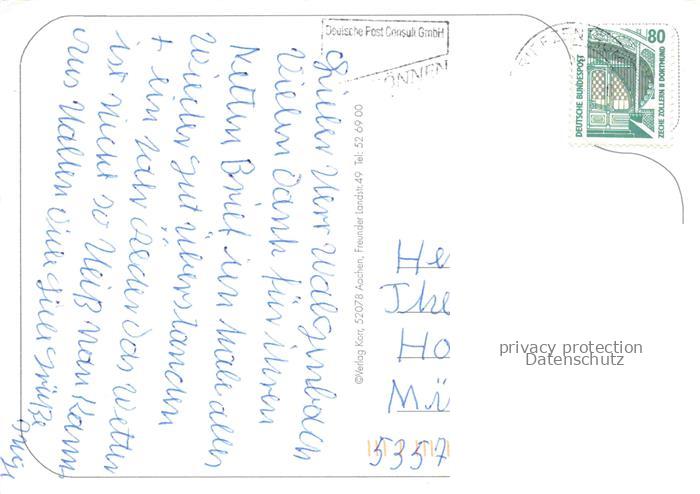 Lieber Herr Walgenbach
Vielen Dank für ihren
Netten Brief ich habe alles
Wieder gut überstanden
+ ein Jahr wieder das Wetter
ist nicht so Heiß man kann
Aus halten viele Liebe Grüße
Inge
Deutsche Post Consult GmbH
ÖNNEN
©Verlag Korr, 52078 Aachen, Freunder Landstr.49 Tel: 52 69 00
80
DEUTSCHE BUNDESPOST
ZECHE ZOLLERN II DORTMUND
He
The
Ho
Mü
5357
privacy protection
Datenschutz